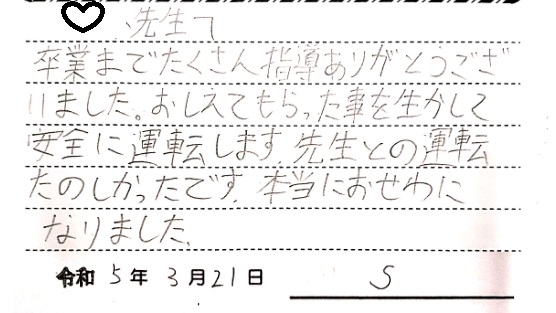 、先生へ
卒業までたくさん指導ありがとうござ
いました。おしえてもらった事を生かして
安全に運転します。先生との運転
たのしかったです。本当におせわに
なりました。
令和 5年 3月21日 S